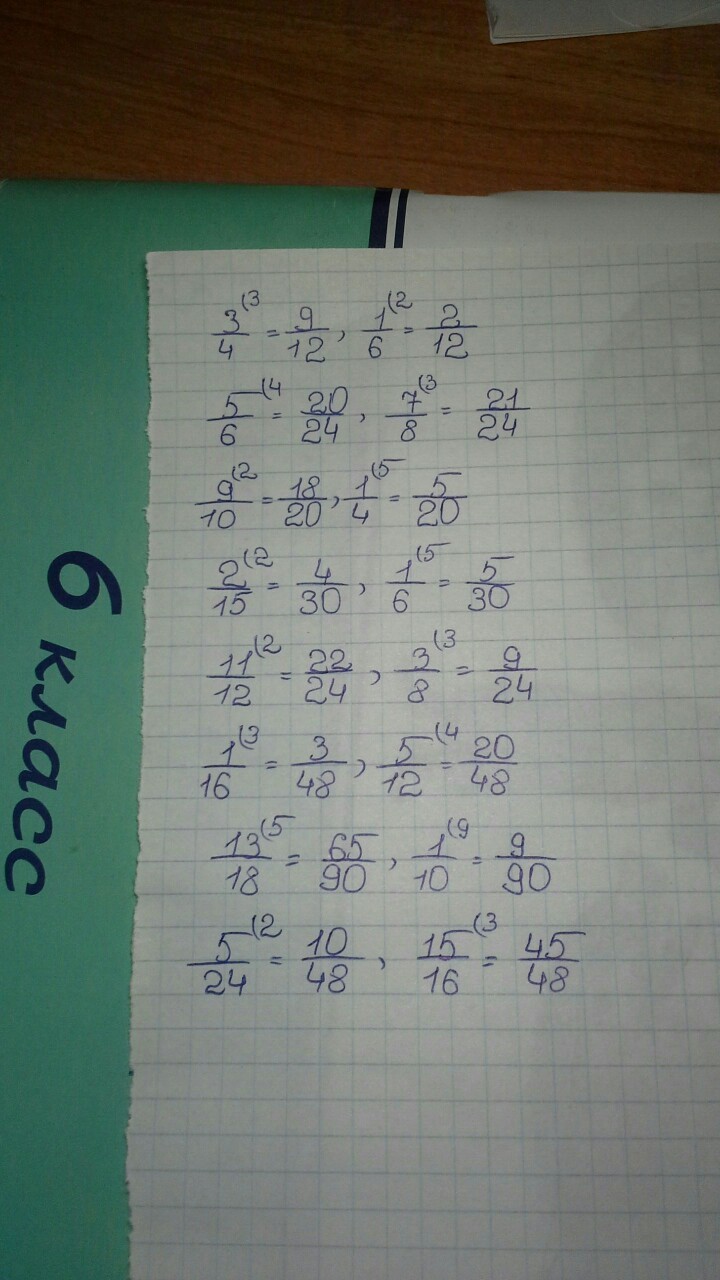 3/4 (3 = 9/12, 1/6 (2 = 2/12
5/6 (4 = 20/24, 7/8 (3 = 21/24
9/10 (2 = 18/20, 1/4 (5 = 5/20
2/15 (2 = 4/30, 1/6 (5 = 5/30
11/12 (2 = 22/24, 3/8 (3 = 9/24
1/16 (3 = 3/48, 5/12 (4 = 20/48
13/18 (5 = 65/90, 1/10 (9 = 9/90
5/24 (2 = 10/48, 15/16 (3 = 45/48
6 класс